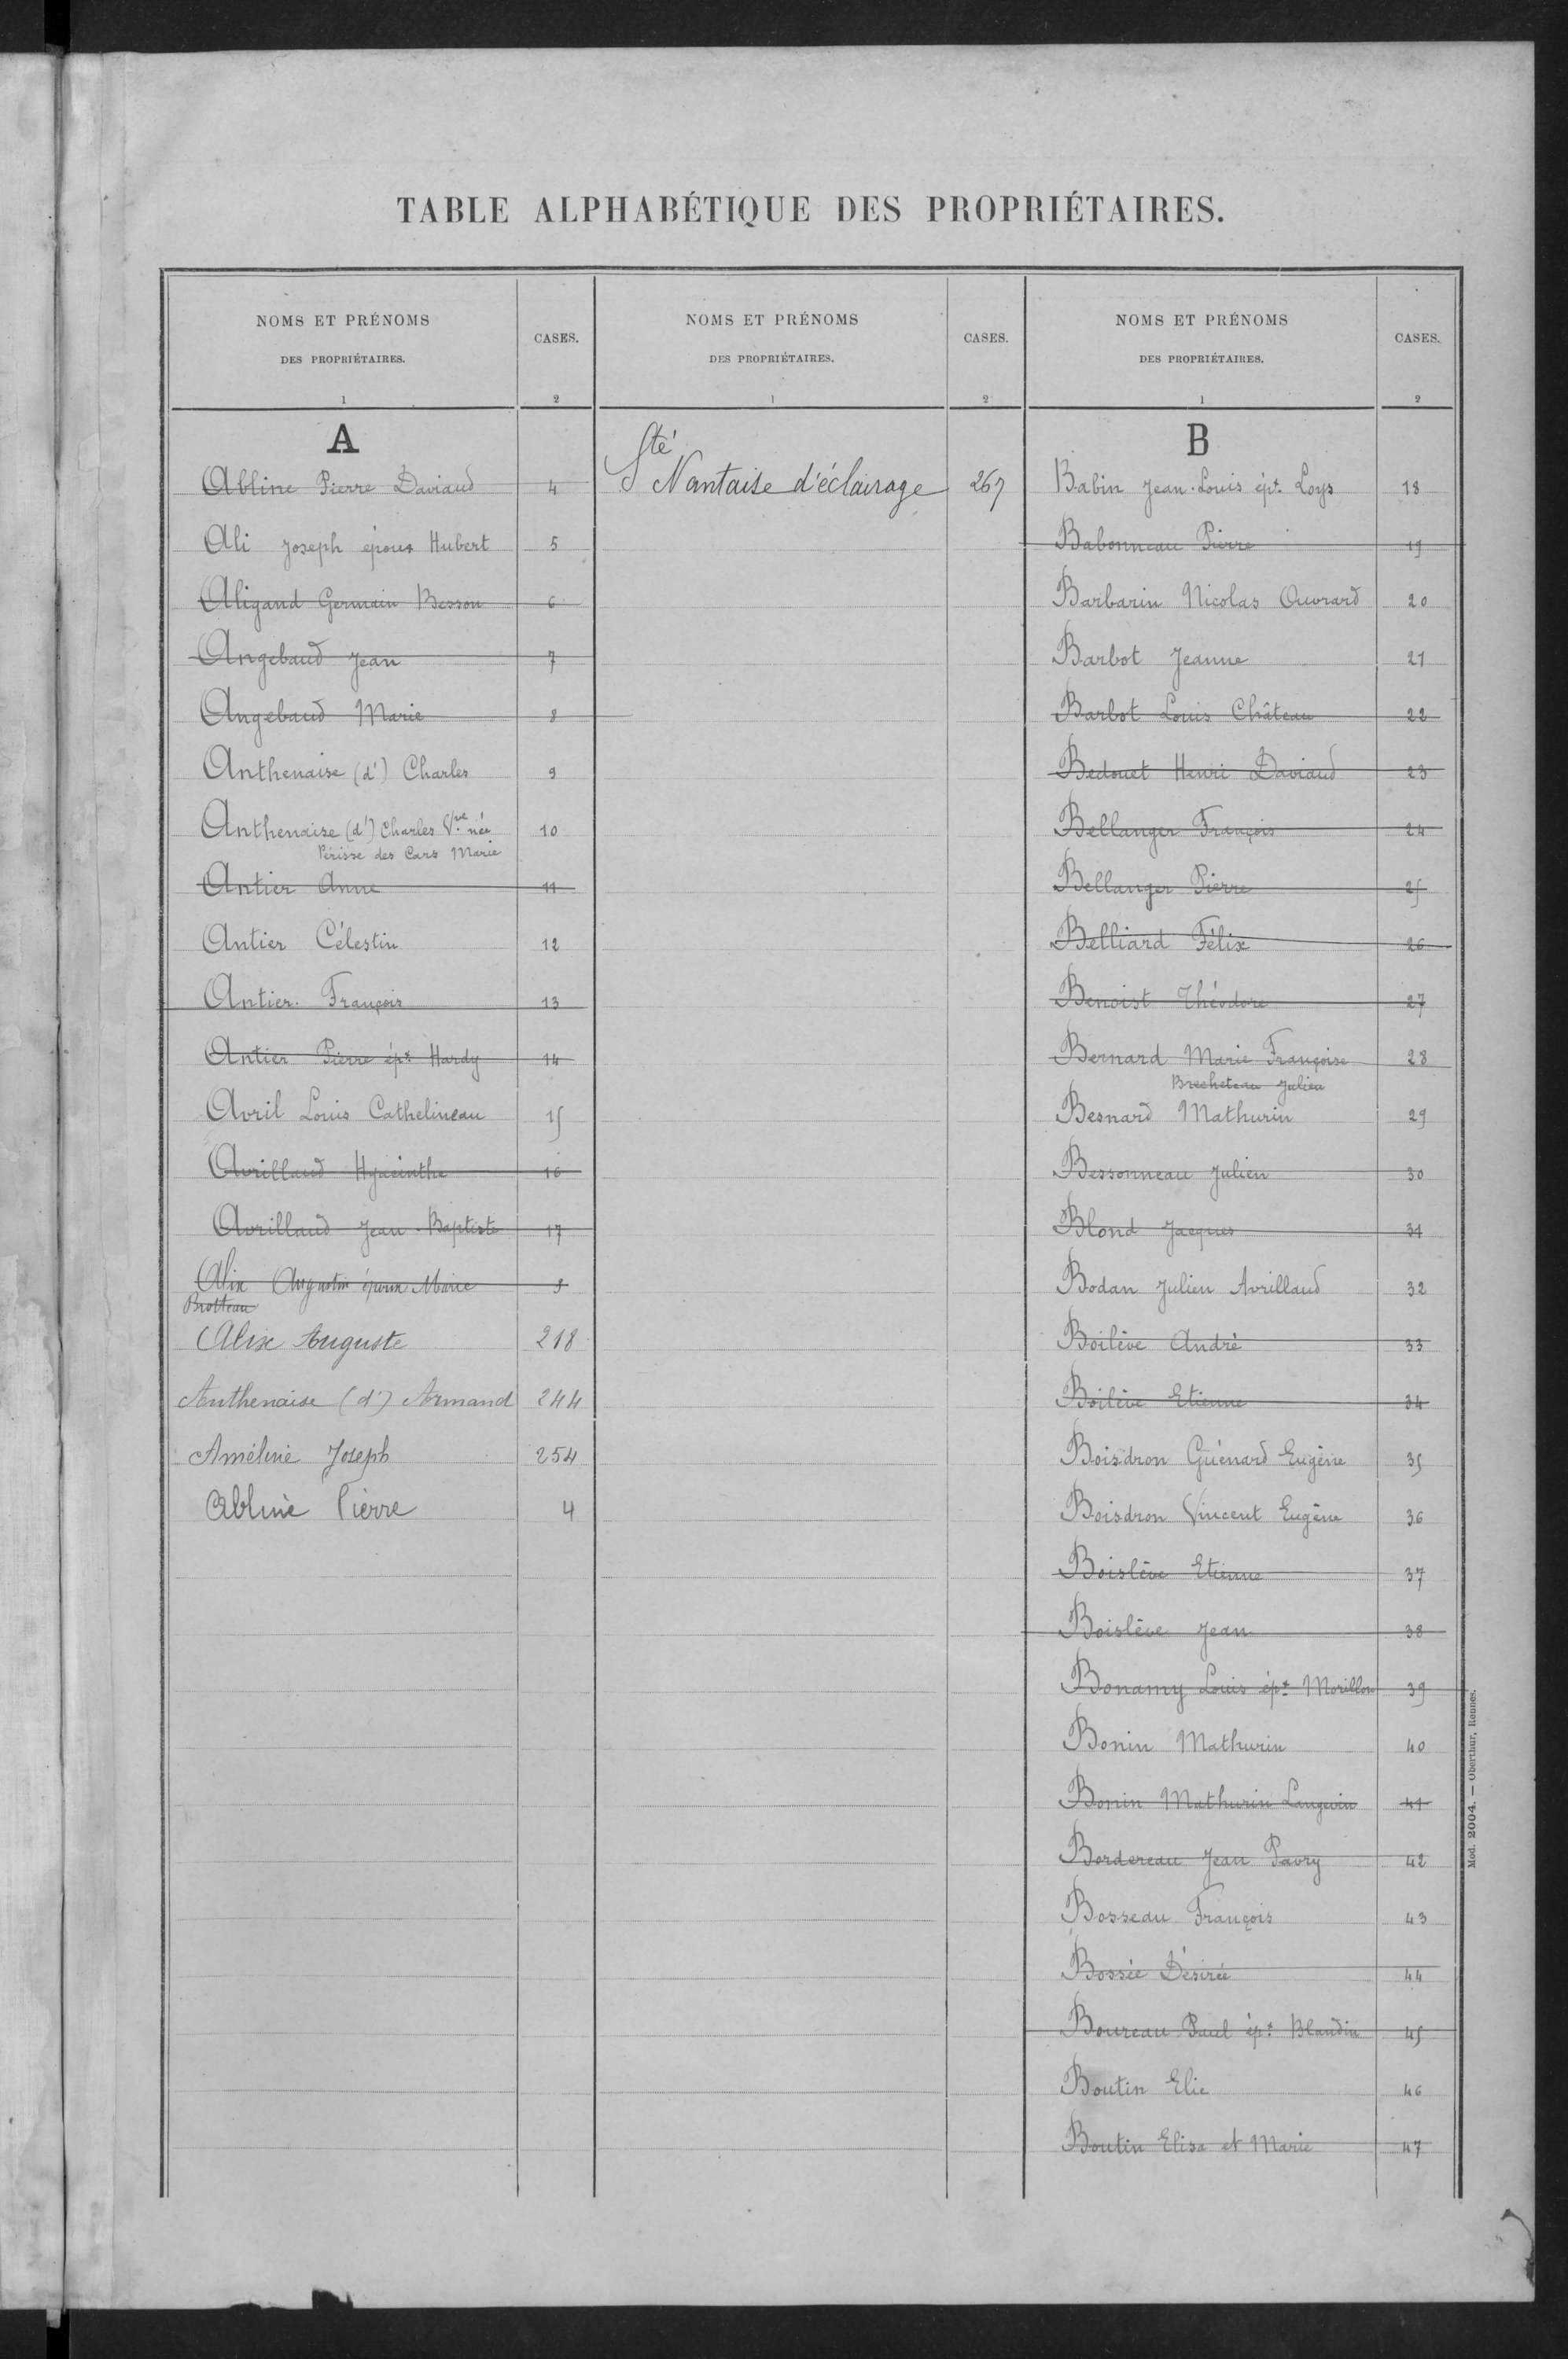 TABLE ALPHABÉTIQUE DES PROPRIÉTAIRES.
NOMS ET PRÉNOMS
DES PROPRIÉTAIRES.
1
CASES.
2
A
Abline Pierre Daviaud 4
Ali Joseph époux Hubert 5
Aligand Germain Besson 6
Angebaud Jean 7
Angebaud Marie 8
Anthenaise (d') Charles 9
Anthenaise (d') Charles Vve née 10
Périsse des Cars Marie
Antier Anne 11
Antier Célestin 12
Antier François 13
Antier Pierre épx Hardy 14
Avril Louis Cathelineau 15
Avrillaud Hyacinthe 16
Avrillaud Jean-Baptiste 17
Alix Augustin époux Marie
Brotteau
Alix Auguste 218
Anthenaise (d') Armand 244
Améline Joseph 254
Abline Pierre 4
NOMS ET PRÉNOMS
DES PROPRIÉTAIRES.
1
CASES.
2
Sté
Nantaise d'éclairage 267
NOMS ET PRÉNOMS
DES PROPRIÉTAIRES.
1
CASES.
2
B
Babin Jean-Louis épx Loys 18
Babonneau Pierre 19
Barbarin Nicolas Ouvrard 20
Barbot Jeanne 21
Barbot Louis Château 22
Bedouet Henri Daviaud 23
Bellanger François 24
Bellanger Pierre 25
Belliard Félix 26
Benoist Théodore 27
Bernard Marie Françoise 28
Brecheteau Julien
Besnard Mathurin 29
Bessonneau Julien 30
Blond Jacques 31
Bodan Julien Avrillaud 32
Boilève André 33
Boilève Etienne 34
Boisdron Guénard Eugène 35
Boisdron Vincent Eugène 36
Boislève Etienne 37
Boislève Jean 38
Bonamy Louis épx Morillon 39
Bonin Mathurin 40
Bonin Mathurin Langevin 41
Bordereau Jean Pavry 42
Bosseau François 43
Bossée Désirée 44
Boureau Paul épx Blandin 45
Boutin Elie 46
Boutin Elisa et Marie 47
Mod. 2004. — Oberthur, Rennes.